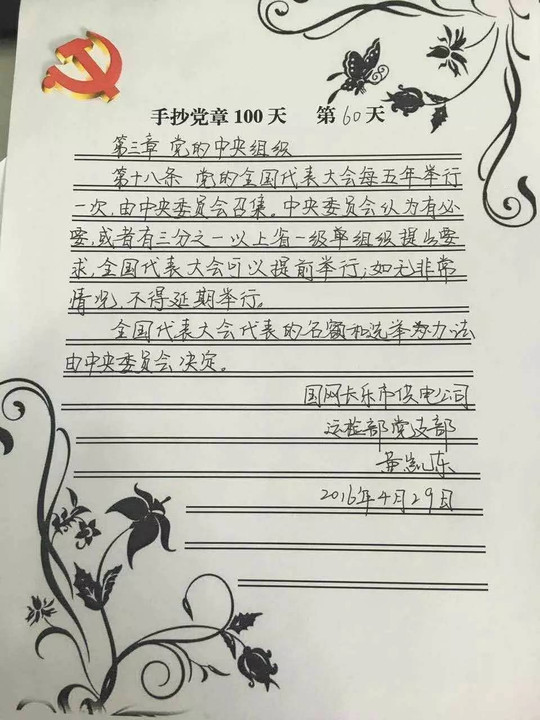 手抄党章100天 第60天
第三章 党的中央组织
第十八条 党的全国代表大会每五年举行
一次,由中央委员会召集。中央委员会认为有必
要,或者有三分之一以上省一级单组织提出要
求,全国代表大会可以提前举行;如无非常
情况,不得延期举行。
全国代表大会代表的名额和选举办法
由中央委员会决定。
国网长乐市供电公司
运检部党支部
黄凯东
2016年4月29日